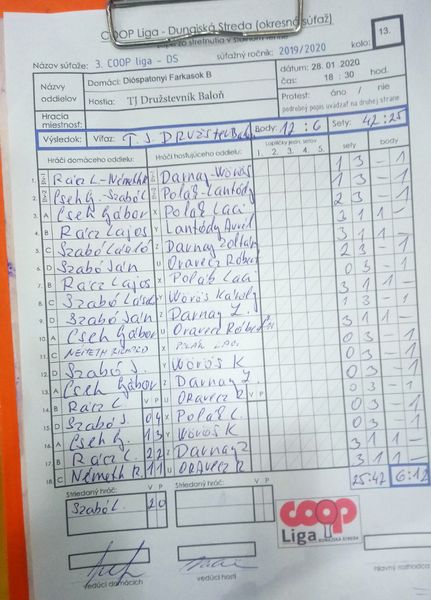 COOP Liga - Dunajská Streda (okresná súťaž)
Zápis zo stretnutia v stolnom tenise
Názov súťaže: 3. COOP liga - DS súťažný ročník: 2019/2020 kolo: 13.
Názvy oddielov Domáci: Dióspatonyi Farkasok B dátum: 28. 01. 2020
čas: 18 : 30 hod.
Hostia: TJ Družstevník Baloň Protest: áno / nie
podrobný popis uvádzať na druhej strane
Hracia miestnosť:
Výsledok: Víťaz: T.J. DRUŽSTEV. Body: 12 : 6 Sety: 42 : 25
Hráči domáceho oddielu Hráči hosťujúceho oddielu 1. 2. 3. 4. 5. sety body
1. Rácz L.-Németh Darnay-Wörös 1 3 - 1
2. Cseh G.-Szabó L Poláš-Lantódy 1 3 - 1
3. A Cseh Gábor X Poláš Laci 2 3 - 1
4. B Rácz Lajos Y Lantódy 3 1 1 -
5. C Szabó László Z Darnay Zoltán 3 1 1 -
6. D Szabó Ján U Oravecz Róbert 2 3 - 1
7. B Rácz Lajos X Poláš Laci 0 3 - 1
8. C Szabó László Y Wörös Károly 3 1 1 -
9. D Szabó Ján Z Darnay Z. 1 3 - 1
10. A Cseh Gábor U Oravecz Róbert 3 1 1 -
11. C NÉMETH X POLÁŠ 0 3 - 1
12. D Szabó J. Y Wörös K 0 3 - 1
13. A Cseh Gábor Z Darnay Z. 0 3 - 1
14. B Rácz L V P U Oravecz R V P 0 3 - 1
15. D Szabó J. 0 4 X Poláš L. 0 3 - 1
16. A Cseh G. 1 3 Y Wörös K 0 3 - 1
17. B Rácz L. 2 2 Z Darnay Z 3 1 1 -
18. C Németh R 1 1 U Oravecz R 3 1 1 -
25:42 6:12
Striedaný hráč: V P Striedaný hráč: V P
Szabó L. 2 0
COOP
Liga DUNAJSKÁ STREDA
vedúci domácich vedúci hostí hlavný rozhodca